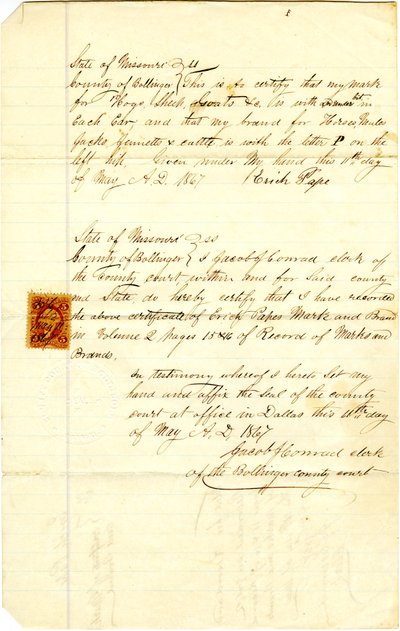 State of Missouri } ss
County of Bollinger } This is to certify that my mark
for Hogs, Sheep, Goats &c. is with in
Each Ear, and that my brand for Horses, Mules
Jacks, Jennetts & cattle is with the letter P on the
left hip Given under My hand this 11th day
of May A.D. 1867 Erich Pape
State of Missouri } ss
County of Bollinger } I Jacob J Conrad clerk of
the County court within and for said county
and State, do hereby certify that I have recorded
the above certificate, of Erich Papes Mark and Brand
in Volume 2 pages 15 & 16 of Record of Marks and
Brands.
In testimony whereof I hereto Set my
hand and affix the Seal of the county
court at office in Dallas this 11th day
of May A.D. 1867
Jacob J Conrad clerk
of the Bollinger county court